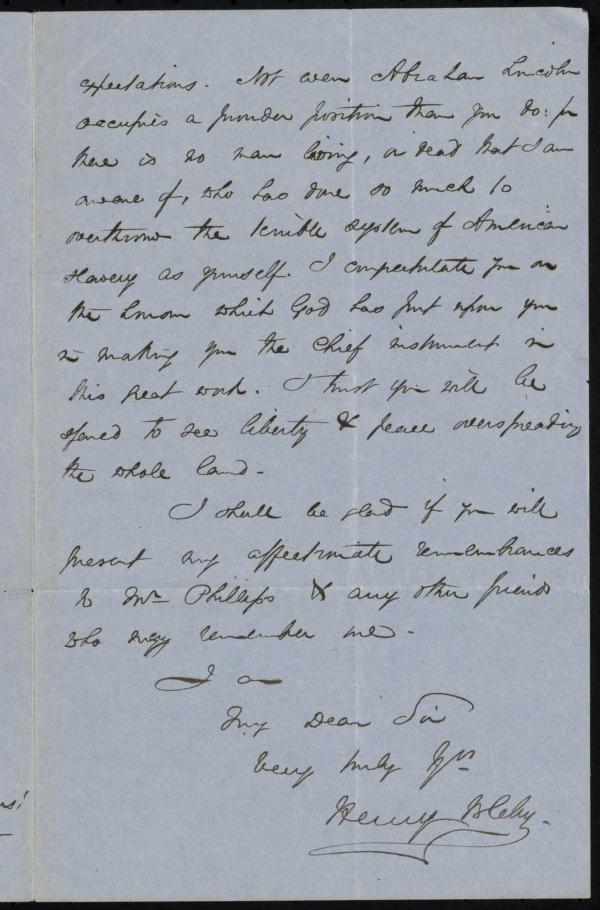 expectations. Not even Abraham Lincoln
occupies a prouder position than you do: for
there is no man living, or dead that I am
aware of, who has done so much to
overthrow the terrible system of American
slavery as yourself. I congratulate you on
the honour which God has put upon you
in making you the chief instrument in
this great work. I trust you will be
spared to see liberty & peace overspreading
the whole land.
I shall be glad if you will
present my affectionate remembrances
to Mr. Phillips & any other friends
who may remember me.
I am
My Dear Sir
Very truly Yrs
Henry Bleby.